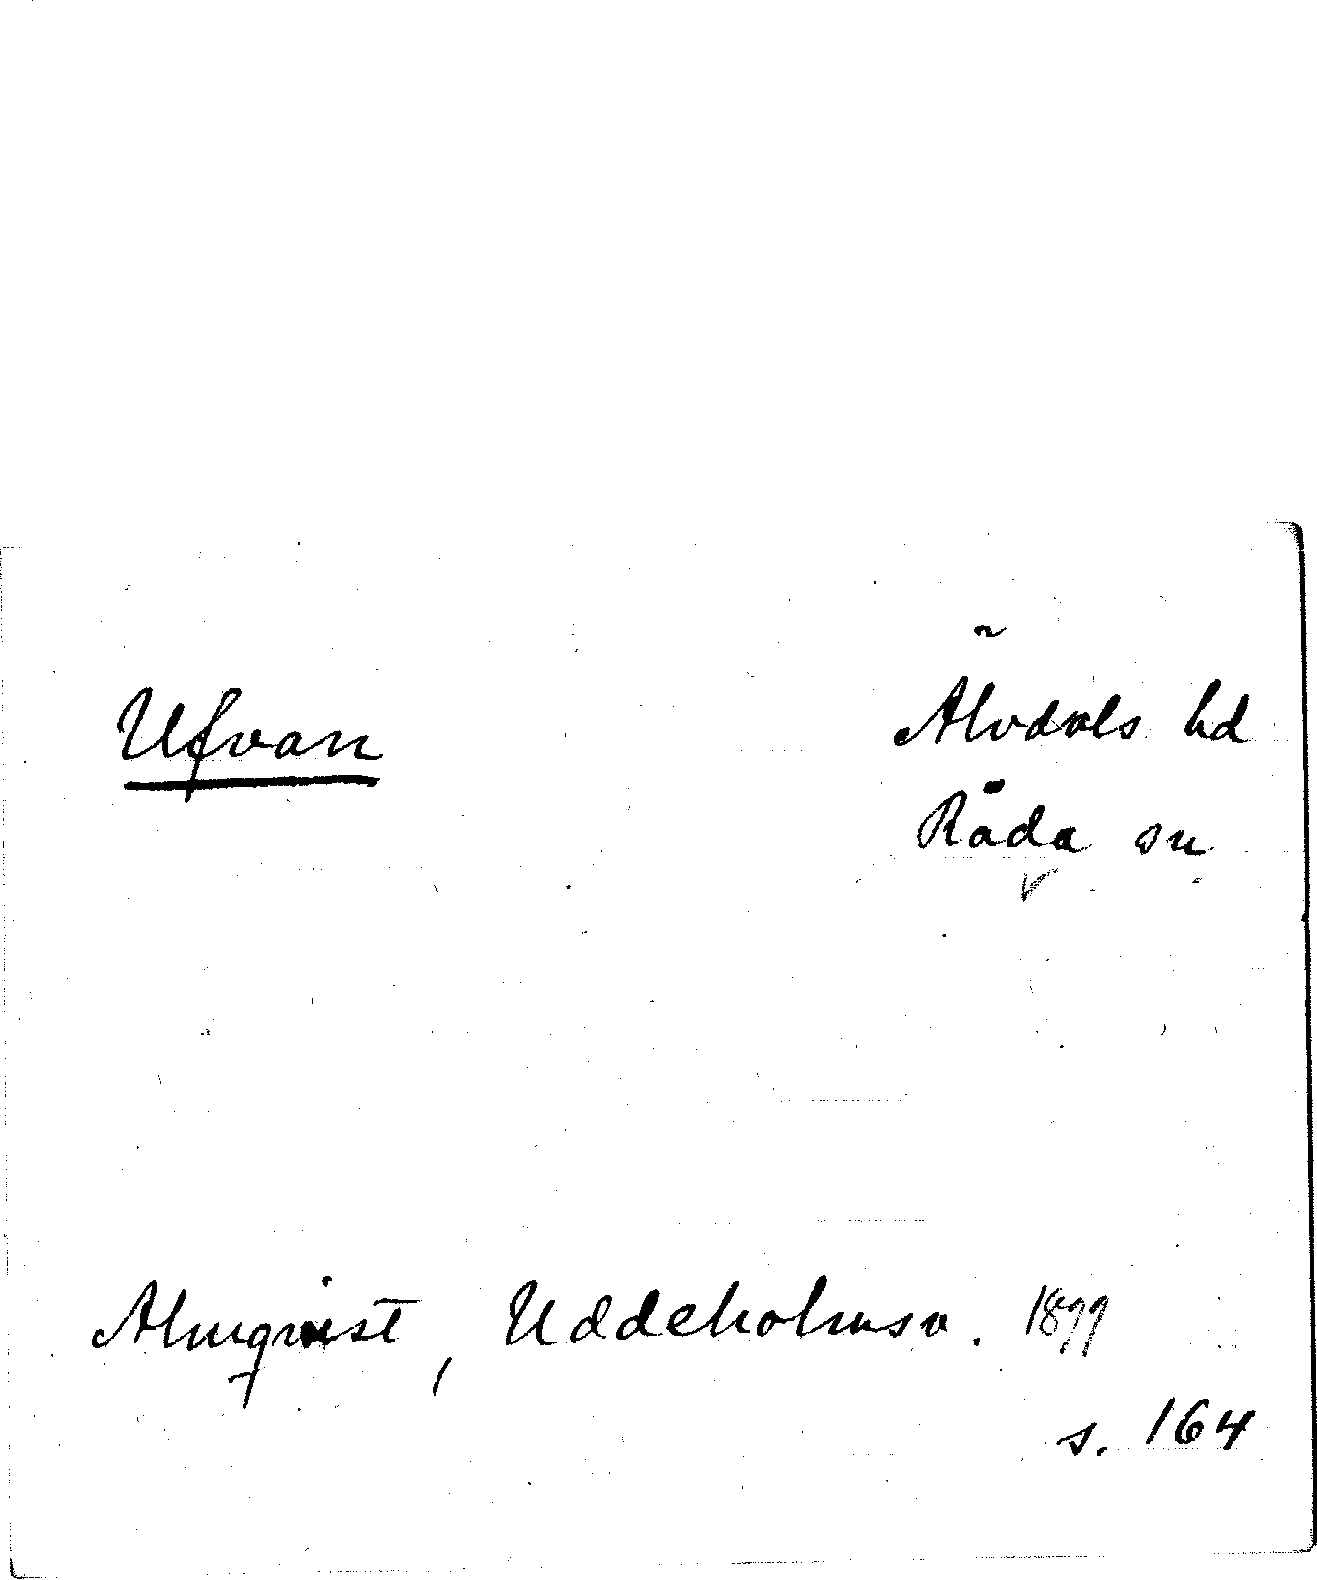 Ufvan
Älvdals hd
Råda sn
Almqvist, Uddeholmsv. 1899
s. 164